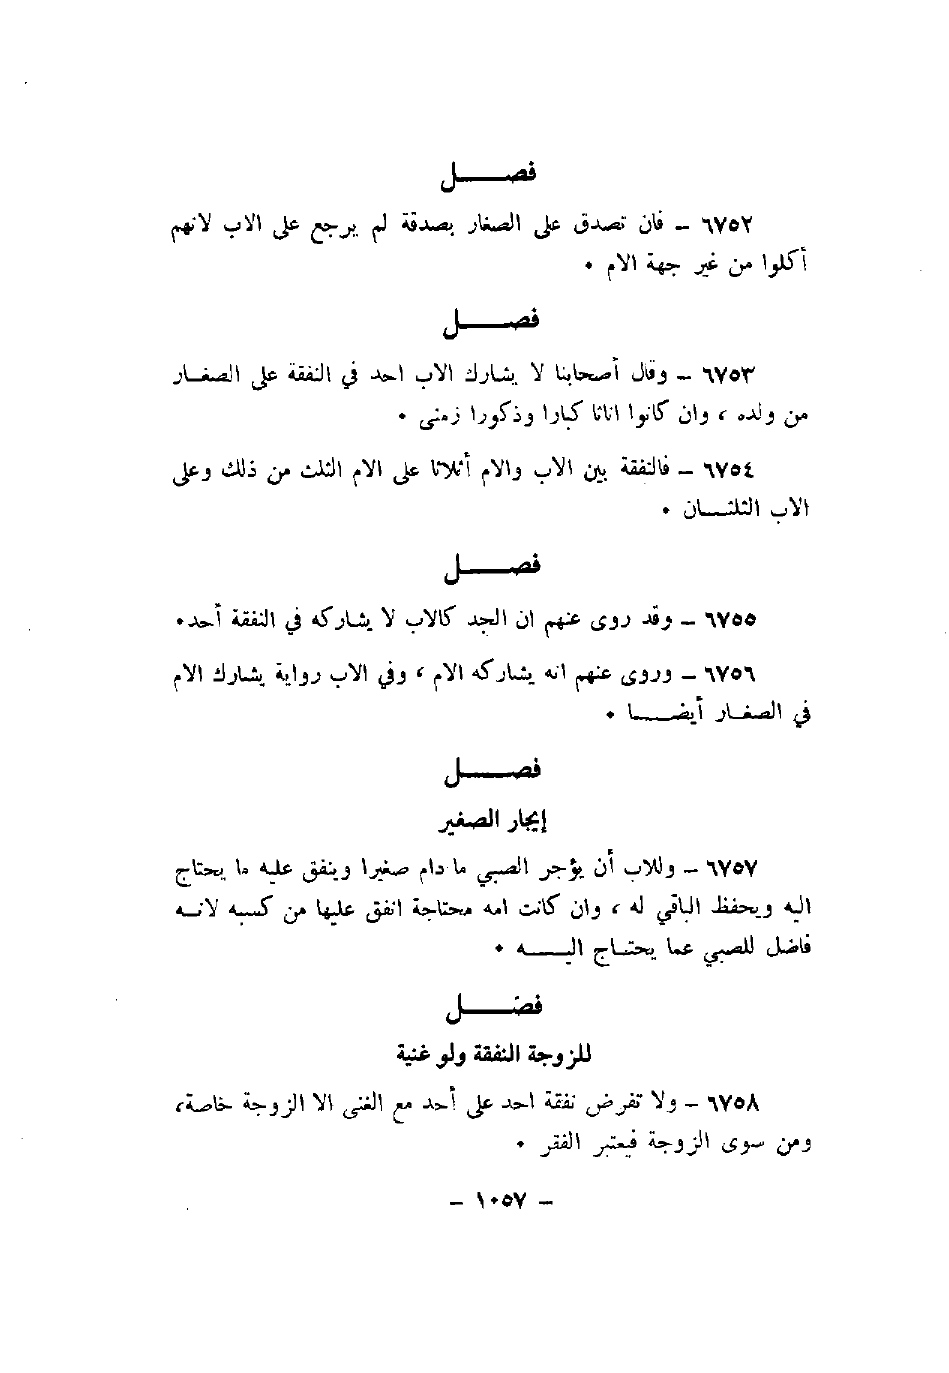 فصــــل
٦٧٥٢ ــ فان تصدق على الصغار بصدقة لم يرجع على الاب لانهم
أكلوا من غير جهة الام ٠
فصــــل
٦٧٥٣ ــ وقال أصحابنا لا يشارك الاب احد في النفقة على الصغــار
من ولده ، وان كانوا اناثا كبارا وذكورا زمنى ٠
٦٧٥٤ ــ فالنفقة بين الاب والام أثلاثا على الام الثلث من ذلك وعلى
الاب الثلثــــان ٠
فصــــل
٦٧٥٥ ــ وقد روى عنهم ان الجد كالاب لا يشاركه في النفقة أحد٠
٦٧٥٦ ــ وروى عنهم انه يشاركه الام ، وفي الاب رواية يشارك الام
في الصغــار أيضــــا ٠
فصــــل
إيجار الصغير
٦٧٥٧ ــ وللاب أن يؤجر الصبي ما دام صغيرا وينفق عليه ما يحتاج
اليه ويحفظ الباقي له ، وان كانت امه محتاجة انفق عليها من كسبه لانــه
فاضل للصبي عما يحتــاج اليــــه ٠
فصــــل
للزوجة النفقة ولو غنية
٦٧٥٨ ــ ولا تفرض نفقة احد على أحد مع الغنى الا الزوجة خاصة،
ومن سوى الزوجة فيعتبر الفقر ٠
ــ ١٠٥٧ ــ